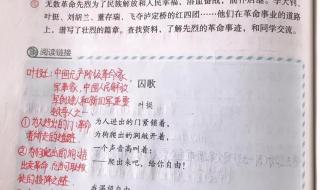 无数革命先烈为了民族解放和人民幸福,浴血奋战,前仆后继。李大钊、
叶挺、刘胡兰、董存瑞、飞夺泸定桥的红四团……他们在革命事业的道路
上,谱写了壮烈的篇章。查找资料,了解先烈的革命事迹,和同学交流。
阅读链接
叶挺:中国无产阶级革命家
军事家,中国人民解放
军创建人和新四军重要
领导人之一
囚歌
叶挺
①为人进出的门:革命
为人进出的门紧锁着,
为狗爬出的洞敞开着,
②为狗爬出的洞
一个声音高叫着:
——爬出来吧,给你自由!
我渴望自由,